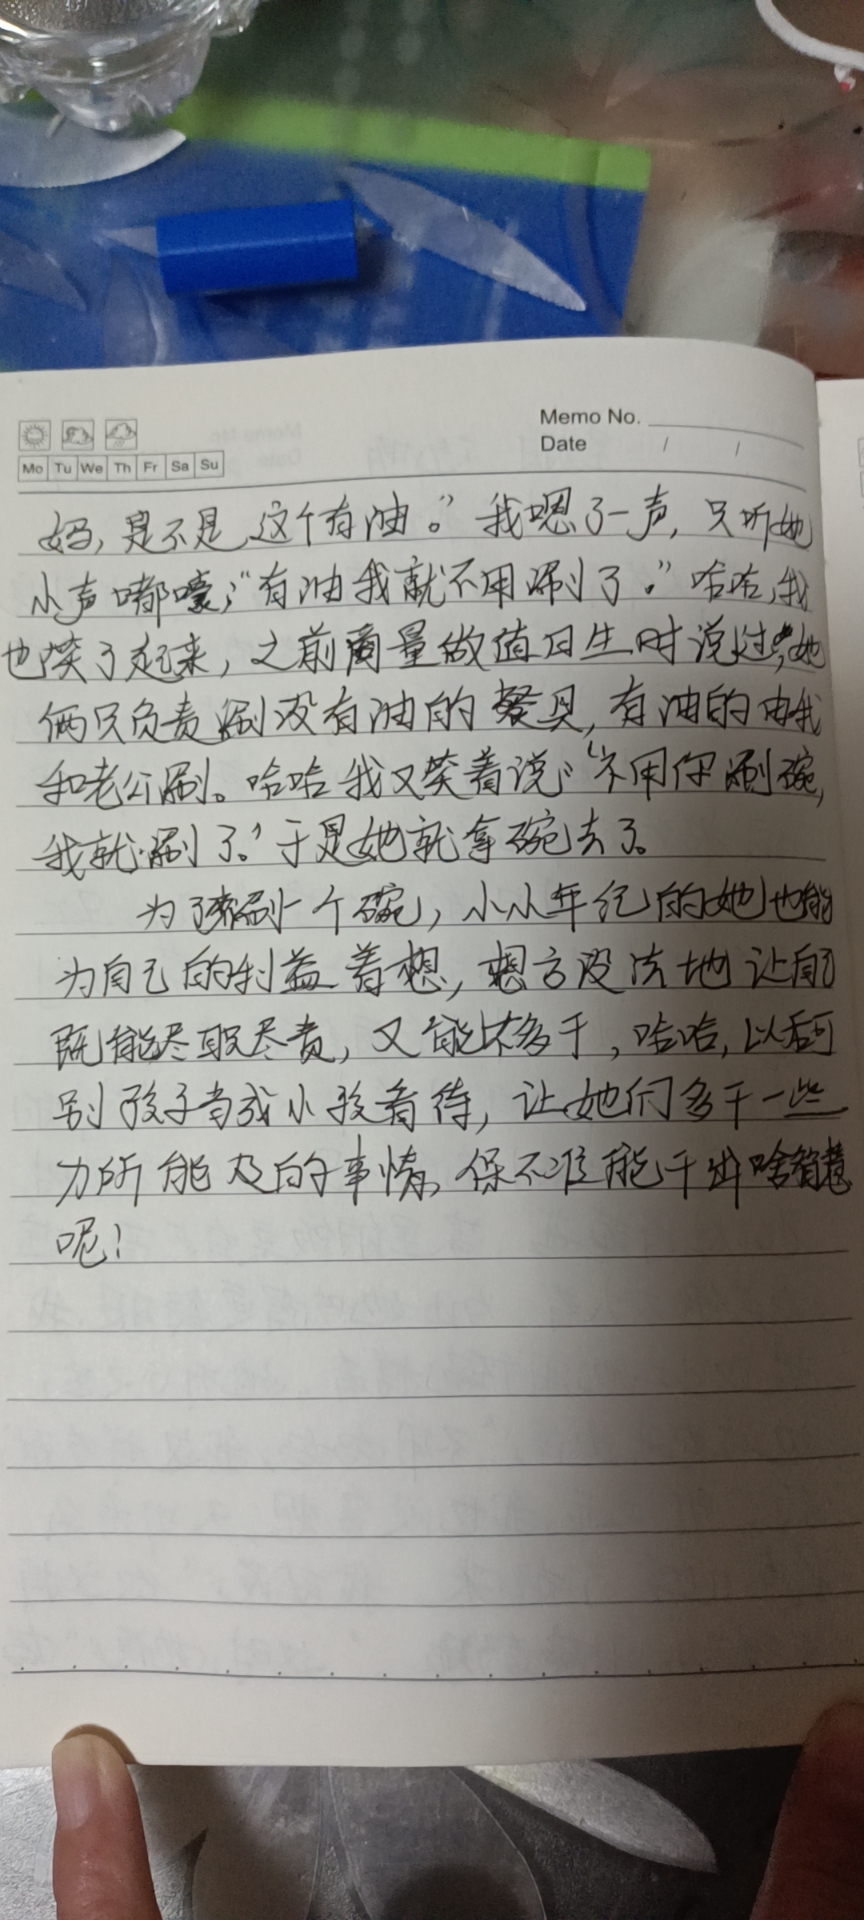 Memo No.
Date / /
Mo Tu We Th Fr Sa Su
妈,是不是这个有油。”我嗯了一声,只听她
小声嘟嚷:“有油我就不用刷了。”哈哈,我
也笑了起来,之前商量做值日生时说过,她
俩只负责刷没有油的餐具,有油的由我
和老公刷。哈哈我又笑着说:“不用你刷碗,
我就刷了。”于是她就拿碗去了。
为了刷一个碗,小小年纪的她也能
为自己的利益着想,想方设法地让自己
既能尽职尽责,又能不多干,哈哈,以后可
别孩子当成小孩看待,让她们多干一些
力所能及的事情,保不准能干出啥智慧
呢!